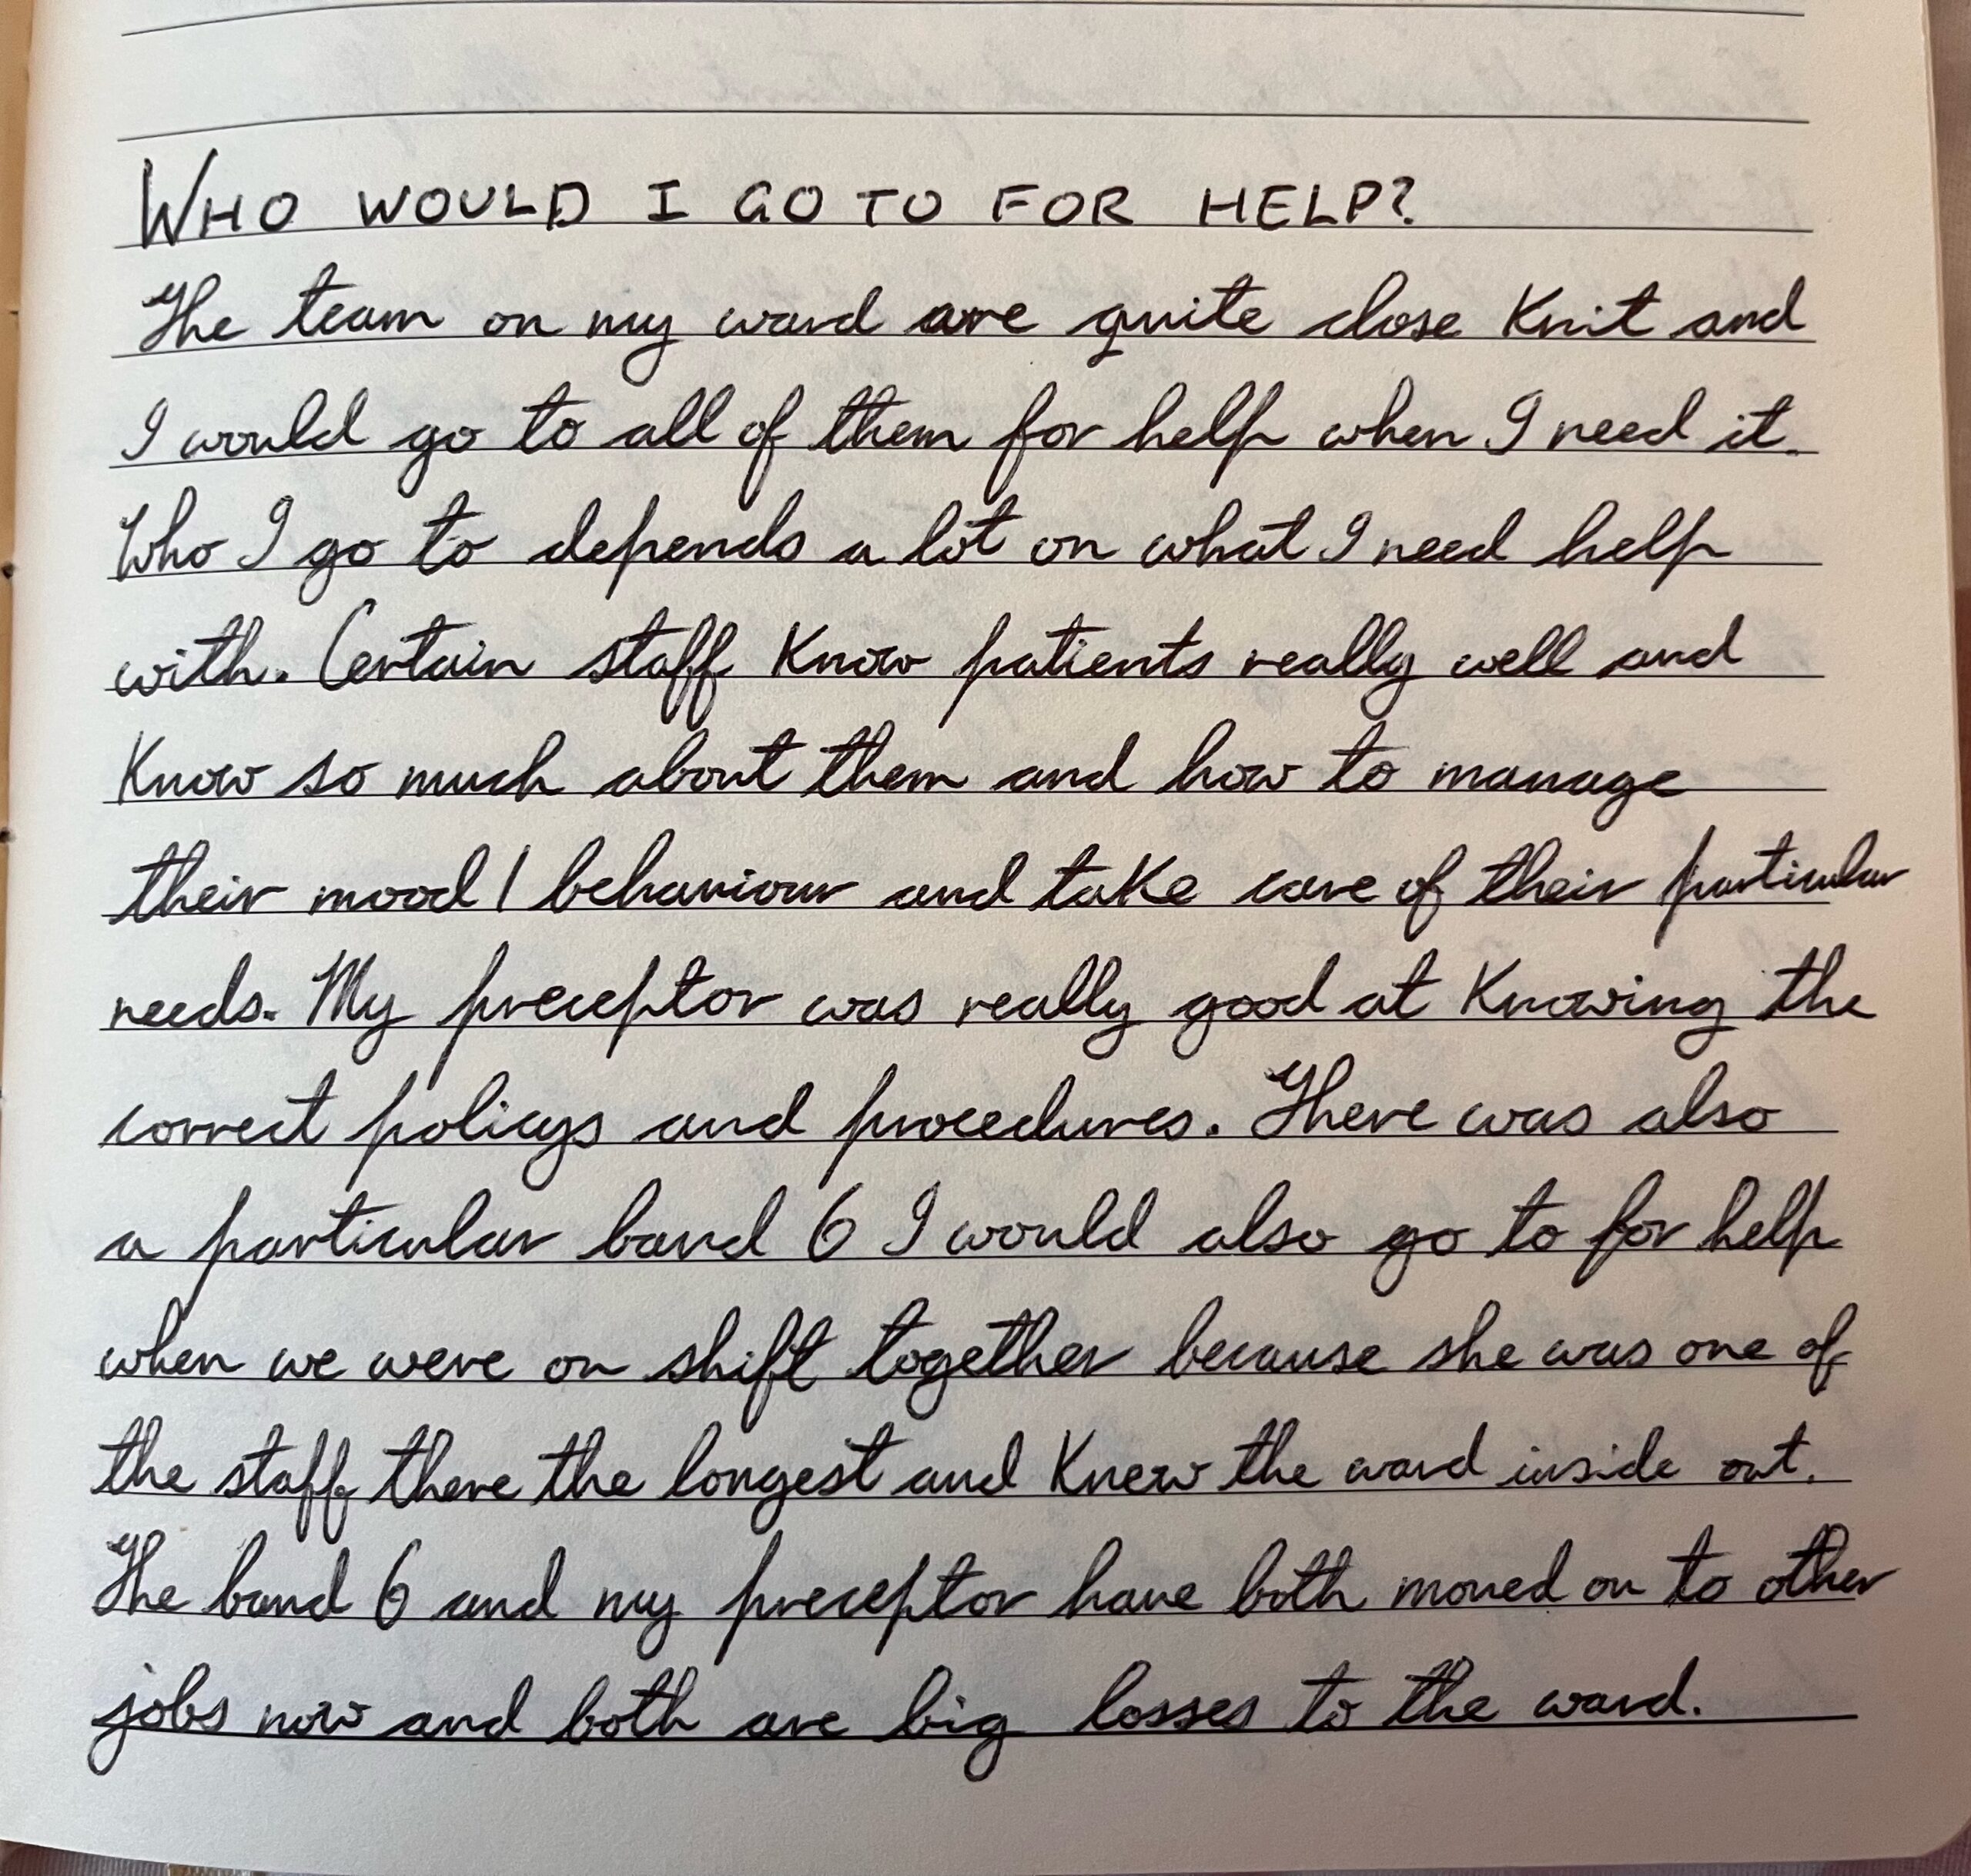 WHO WOULD I GO TO FOR HELP?
The team on my ward are quite close knit and
I would go to all of them for help when I need it.
Who I go to depends a lot on what I need help
with. Certain staff know patients really well and
know so much about them and how to manage
their mood / behaviour and take care of their particular
needs. My preceptor was really good at knowing the
correct policys and procedures. There was also
a particular band 6 I would also go to for help
when we were on shift together because she was one of
the staff there the longest and knew the ward inside out.
The band 6 and my preceptor have both moved on to other
jobs now and both are big losses to the ward.